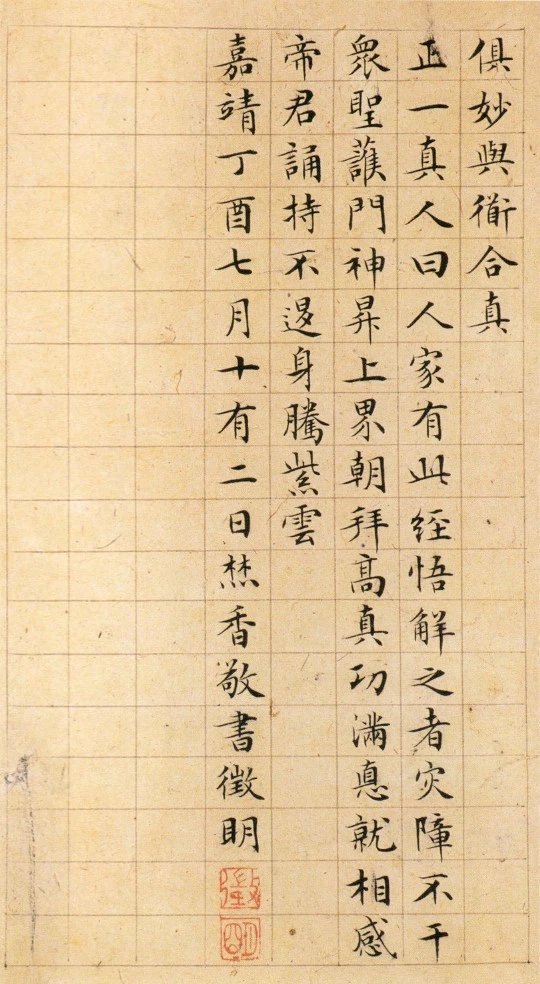 俱妙與衜合真
正一真人曰人家有此經悟解之者灾障不干
眾聖護門神昇上界朝拜髙真功滿悳就相感
帝君誦持不退身騰紫雲
嘉靖丁酉七月十有二日焚香敬書徵明
徵
明